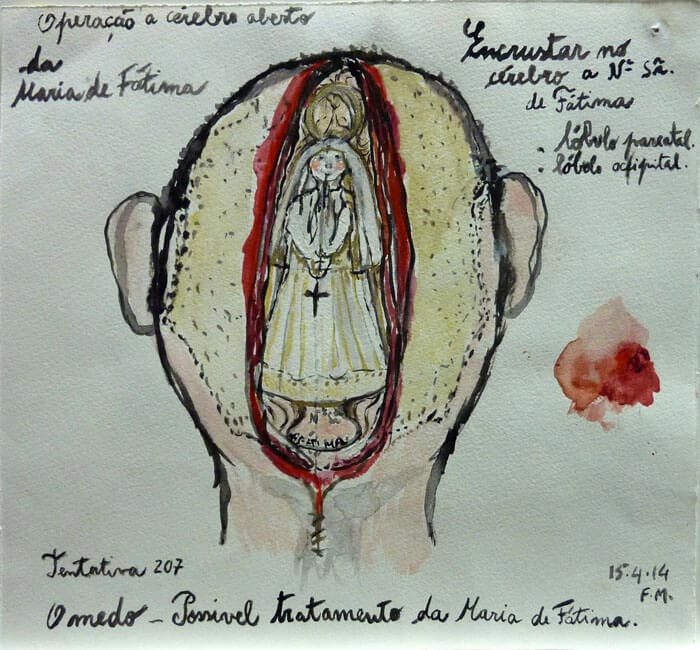 Operação a cérebro aberto
da
Maria de Fátima
Encrustar no
cérebro a Nª Sª.
de Fátima
. lóbulo
. lóbolo
Nª Sª
FÁTIMA
Tentativa 207
15.4.14
F.M.
O medo - Possivel tratamento da Maria de Fátima.